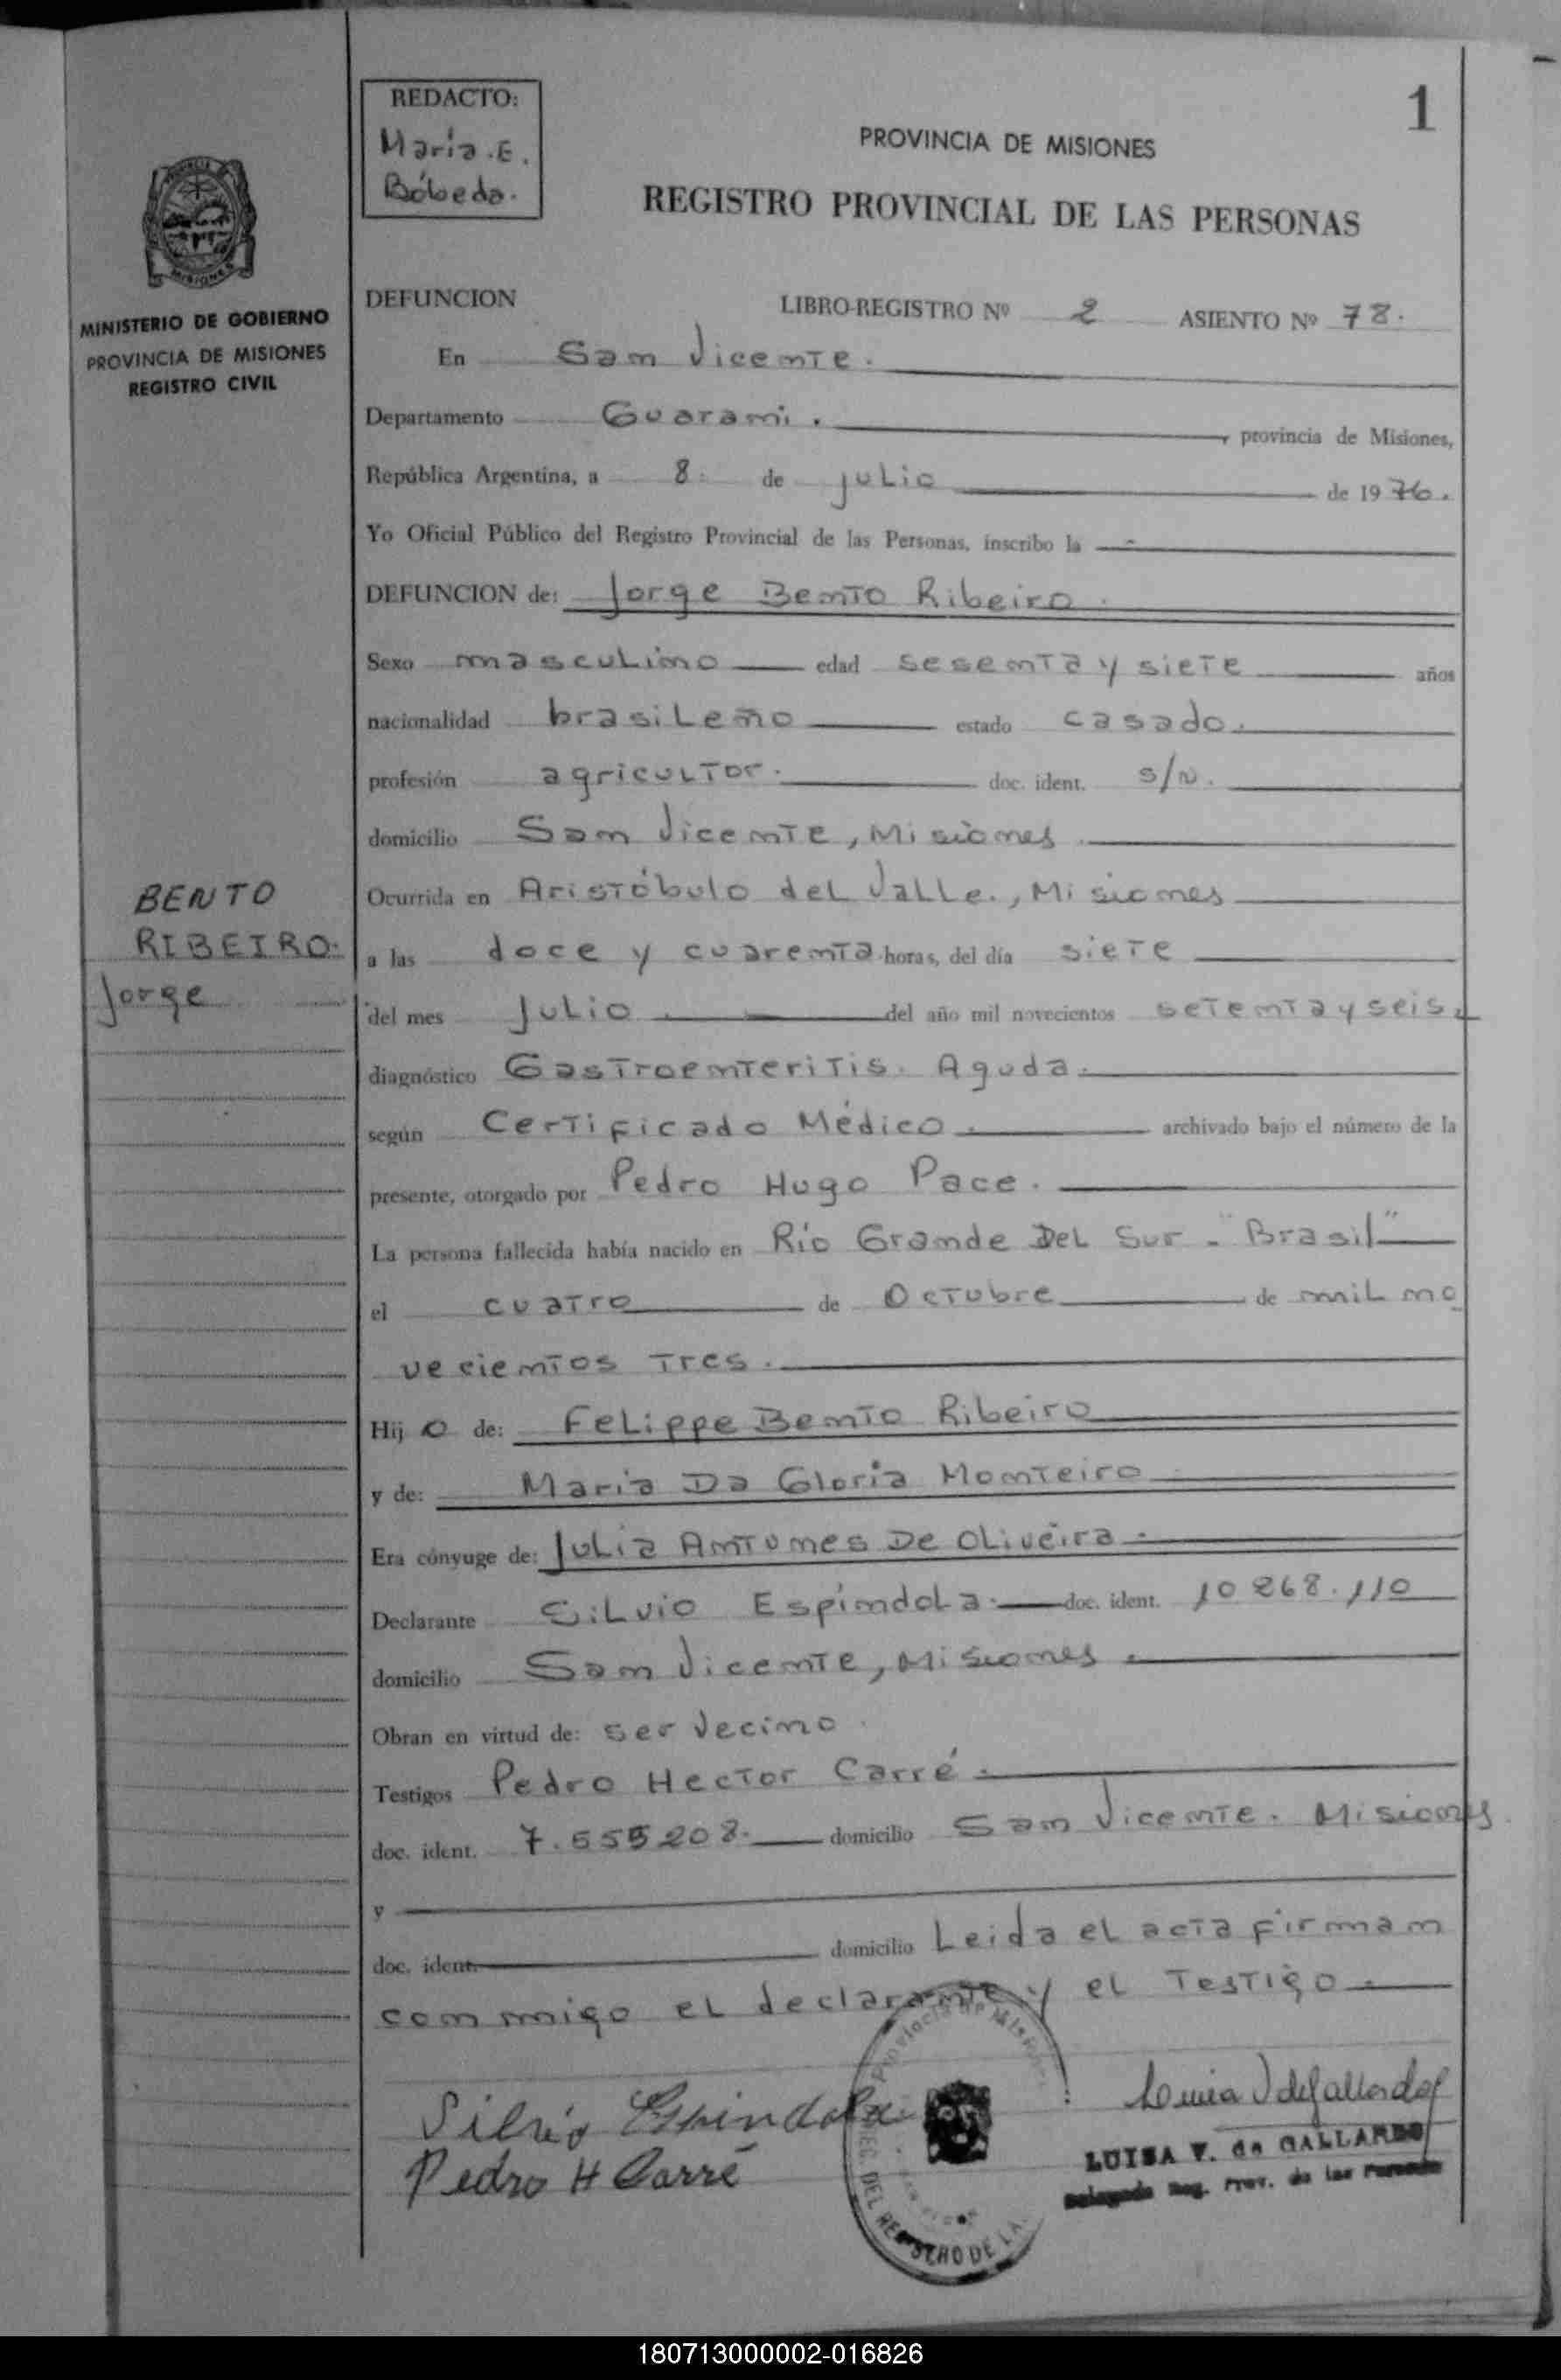 1
REDACTO:
María.E.
Bóbeda.
PROVINCIA DE MISIONES
REGISTRO PROVINCIAL DE LAS PERSONAS
PROVINCIA
MISIONES
MINISTERIO DE GOBIERNO
PROVINCIA DE MISIONES
REGISTRO CIVIL
DEFUNCION LIBRO-REGISTRO Nº 2 ASIENTO Nº 78.
En San Vicente.
Departamento Guaraní. , provincia de Misiones,
República Argentina, a 8. de julio de 1976.
Yo Oficial Público del Registro Provincial de las Personas, inscribo la
DEFUNCION de: Jorge Bento Ribeiro.
Sexo masculino edad sesenta y siete años
nacionalidad brasileño estado casado.
profesión agricultor. doc. ident. s/n.
domicilio San Vicente, Misiones.
BENTO
RIBEIRO.
Jorge
Ocurrida en Aristóbulo del Valle., Misiones
a las doce y cuarenta horas, del día siete
del mes Julio del año mil novecientos setenta y seis.
diagnóstico Gastroenteritis. Aguda.
según Certificado Médico. archivado bajo el número de la
presente, otorgado por Pedro Hugo Pace.
La persona fallecida había nacido en Río Grande Del Sur - "Brasil"
el cuatro de Octubre de mil no
vecientos tres.
Hij o de: Felippe Bento Ribeiro
y de: Maria Da Gloria Monteiro
Era cónyuge de: Julia Antunes De Oliveira.
Declarante Silvio Espíndola. doc. ident. 10268.110
domicilio San Vicente, Misiones.
Obran en virtud de: ser Vecino.
Testigos Pedro Hector Carré.
doc. ident. 7.555208. domicilio San Vicente. Misiones
y
doc. ident. domicilio Leida el acta firman
conmigo el declarante y el Testigo.
Provincia de Misiones
DEL REGISTRO DE LA
Silvio Espindola
Pedro H Carré
LUISA V. de GALLARDO
Delegada Reg. Prov. de las Personas
180713000002-016826